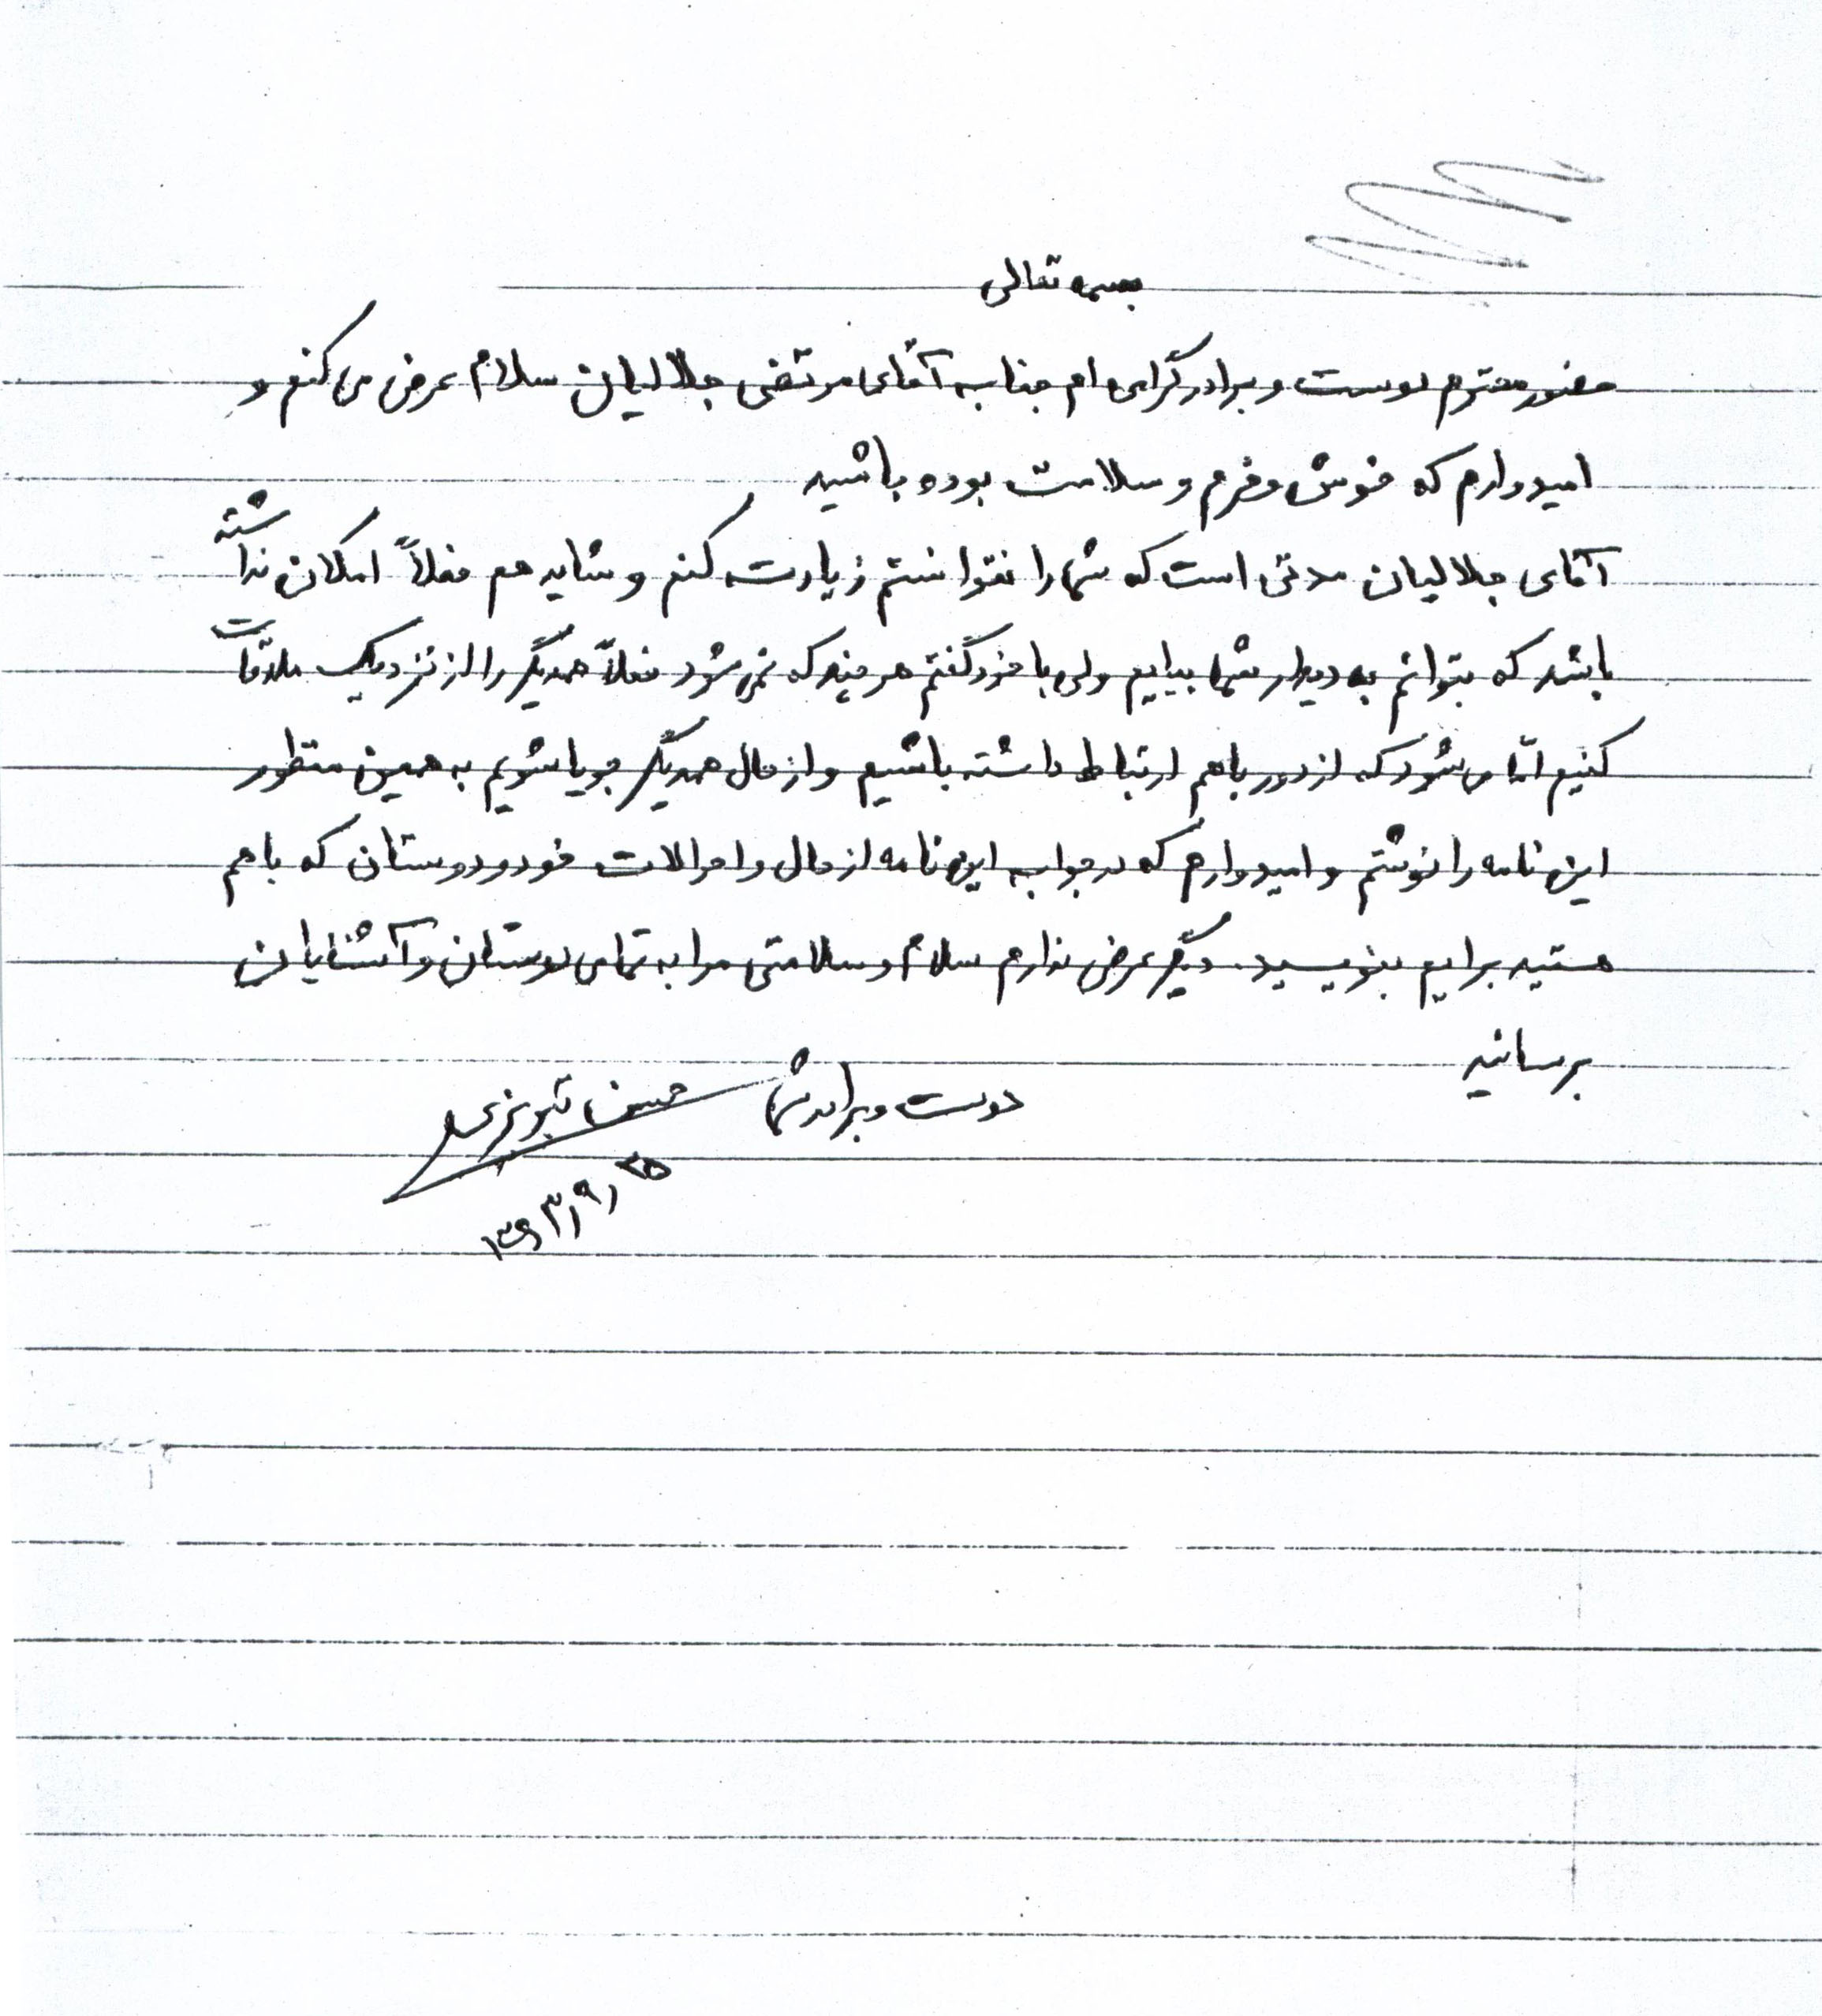 بسمه تعالی
حضور محترم دوست و برادر گرامی ام جناب آقای مرتضی جلالیان سلام عرض می کنم و
امیدوارم که خوش و خرم و سلامت بوده باشید
آقای جلالیان مدتی است که شما را نتوانستم زیارت کنم و شاید هم فعلاً امکان نداشته
باشد که بتوانم به دیدار شما بیایم ولی با خود گفتم هر چند که نمی شود فعلاً همدیگر را از نزدیک ملاقات
کنیم امّا می شود که از دور باهم ارتباط داشته باشیم و از حال همدیگر جویا شویم به همین منظور
این نامه را نوشتم و امیدوارم که در جواب این نامه از حال و احوالات خود و دوستان که باهم
هستید برایم بنویسید. دیگر عرض ندارم سلام و سلامتی مرا به تمامی دوستان و آشنایان
برسانید
دوست و برادر شما حسن تبریزی
۱۳۹۳/۹/۲۵